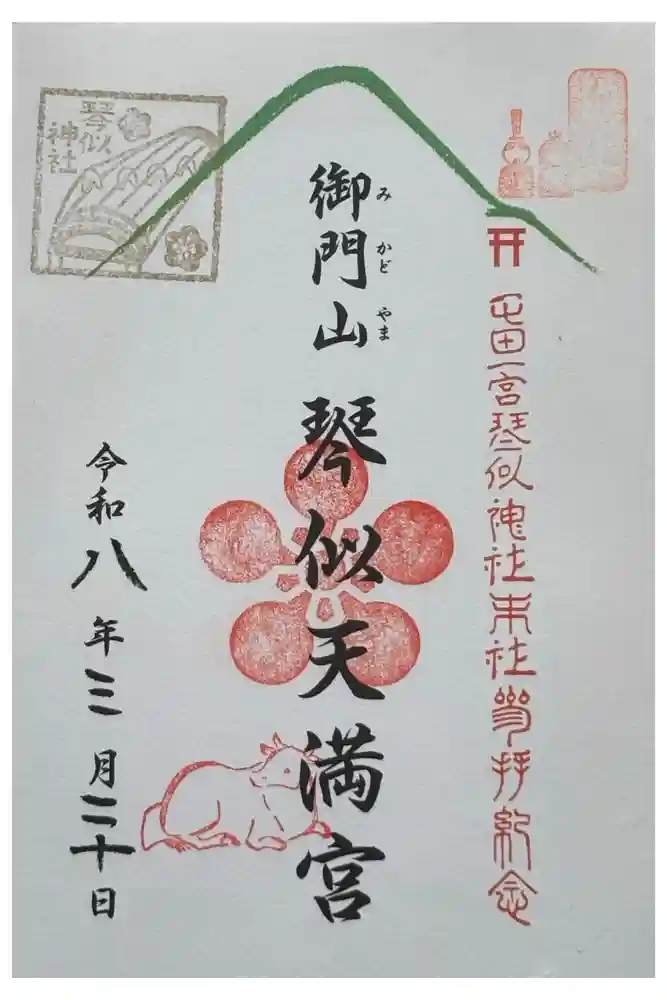 屯田一宮琴似神社末社参拝紀念
御門山 琴似天満宮
みかどやま
琴似
神社
令和八年三月二十日